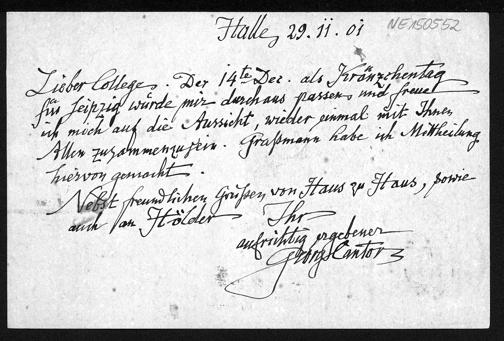 Halle, 29. 11. 01
NE150552
Lieber College. Der 14te Dec. als Kränzchentag
für Leipzig würde mir durchaus passen und freue
ich mich auf die Aussicht, wieder einmal mit Ihnen
Allen zusammenzusein. Graßmann habe ich Mittheilung
hiervon gemacht.
Nebst freundlichen Grüßen von Haus zu Haus, sowie
auch an Hölder
Ihr
aufrichtig ergebener
Georg Cantor